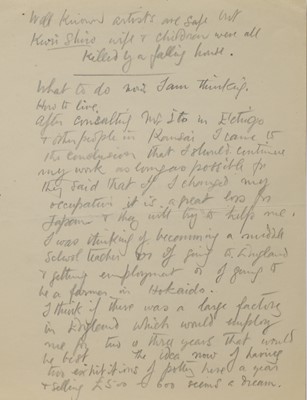 Well known artists are safe but
Kwai Shiro wife & children were all
killed by a falling house.
What to do now I am thinking.
How to live.
After consulting Mr Ito in Echigo
& other people in Kansai I came to
the conclusion that I should continue
my work as long as possible for
they said that if I changed my
occupation it is a great loss for
Japan & they will try to help me.
I was thinking of becomming a middle
School teacher or of going to England
& getting employment or of going to
be a farmer in Hokaido.
I think if there was a large factory
in England which would employ
me for two or three years that would
be best. The idea now of having
two exhibitions of pottery here a year
& selling £500 - 600 seems a dream.